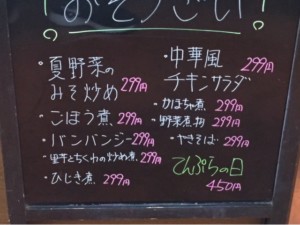 おそうざい!
・夏野菜の
みそ炒め 299円
・ごぼう煮 299円
・バンバンジー 299円
・里芋とちくわの炒め煮 299円
・ひじき煮 299円
・中華風 299円
チキンサラダ
・かぼちゃ煮 299円
・野菜煮物 299円
・やきそば 299円
てんぷらの日
450円